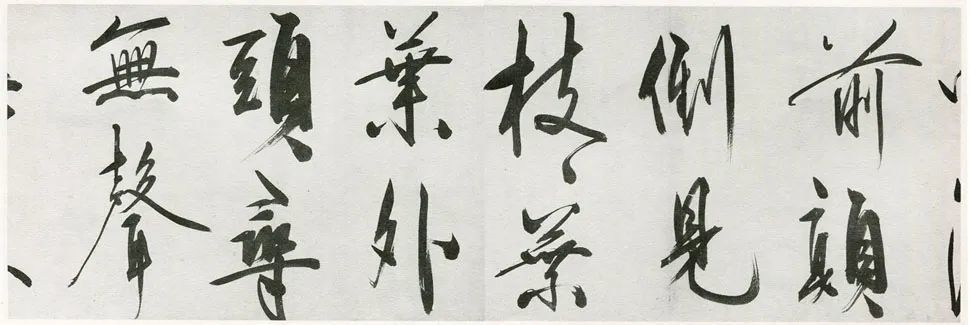 前顛
倒見
枝〻葉
葉外
頭尋
無聲